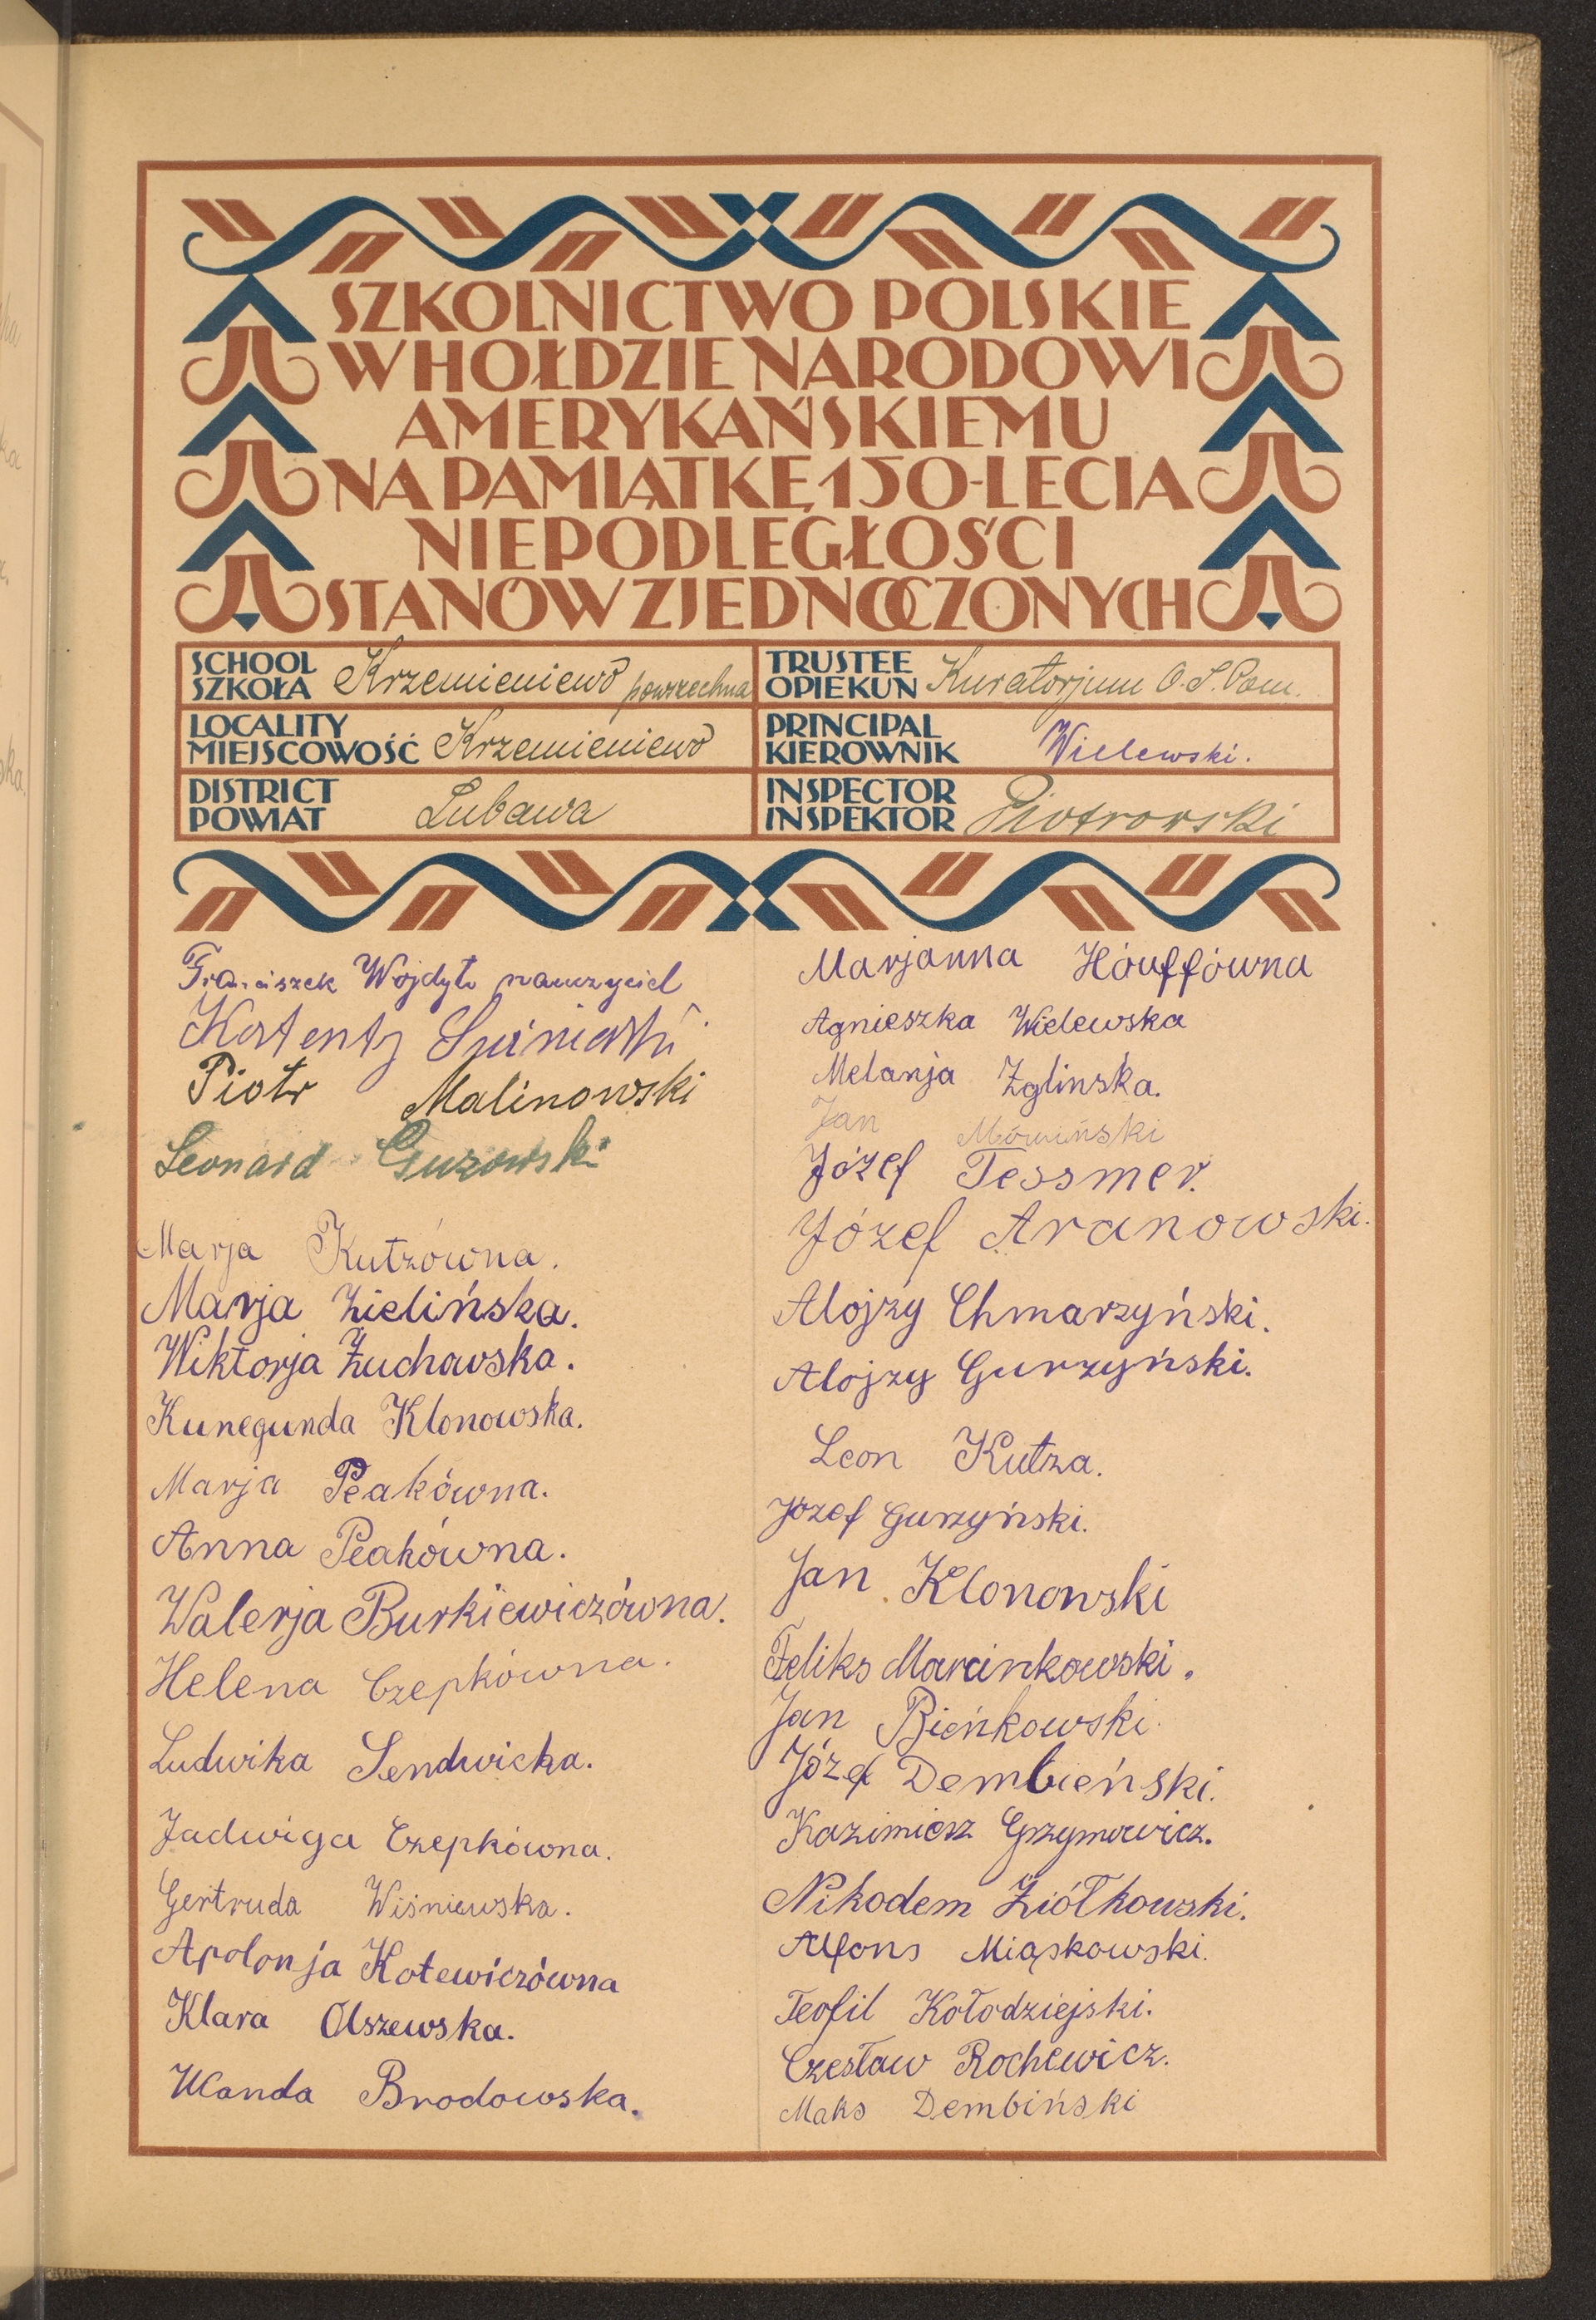 SZKOLNICTWO POLSKIE
W HOŁDZIE NARODOWI
AMERYKAŃSKIEMU
NA PAMIĄTKĘ 150-LECIA
NIEPODLEGŁOŚCI
STANÓW ZJEDNOCZONYCH
SCHOOL
SZKOŁA Krzemieniewo powszechna
TRUSTEE
OPIEKUN Kuratorjum O.S. Pom.
LOCALITY
MIEJSCOWOŚĆ Krzemieniewo
PRINCIPAL
KIEROWNIK Wielewski.
DISTRICT
POWIAT Lubawa
INSPECTOR
INSPEKTOR Piotrowski
Franciszek Wojdyło nauczyciel
Piotr Malinowski
Leonard Guzowski
Marja Kutzówna.
Marja Zielińska.
Wiktorja Żuchowska.
Kunegunda Klonowska.
Marja Peakówna.
Anna Peakówna.
Walerja Burkiewiczówna.
Helena Czepkówna.
Ludwika Sendwicka.
Jadwiga Czepkówna.
Gertruda Wiśniewska.
Apolonja Kotewiczówna
Klara Olszewska.
Wanda Brodowska.
Marjanna Hóuffówna
Agnieszka Wielewska
Melanja Zglinska.
Jan
Józef Tessmer.
Józef Aranowski.
Alojzy Chmarzyński.
Alojzy Gurzyński.
Leon Kutza.
Józef Gurzyński.
Jan Klonowski
Feliks Marcinkowski.
Jan Bieńkowski.
Józef Dembieński.
Kazimierz Grzymowicz.
Nikodem Ziółkowski.
Alfons Miąskowski.
Teofil Kołodziejski.
Czesław Rochewicz.
Maks Dembiński